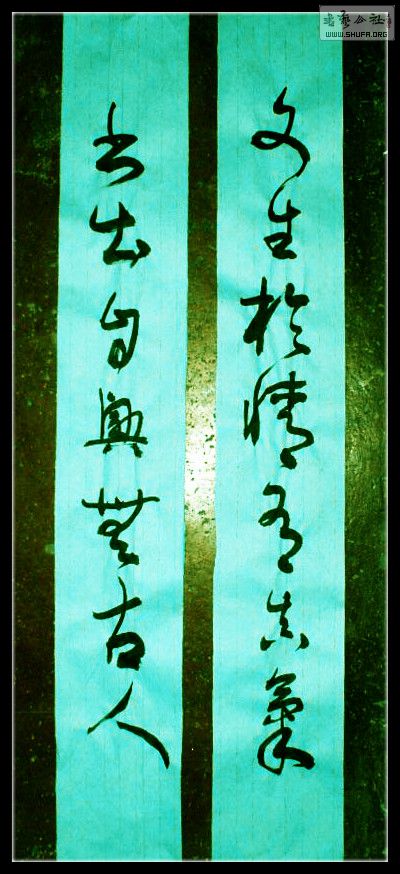 文生於情有春氣
书出自興無古人
書藝公社
WWW.SHUFA.ORG